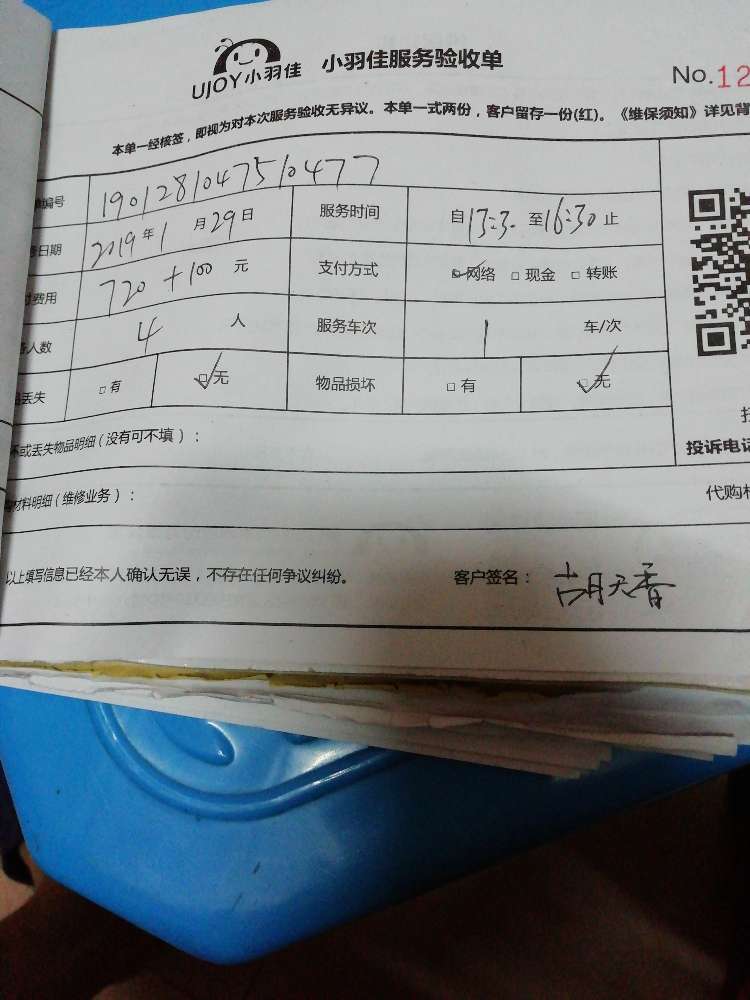 UJOY小羽佳 小羽佳服务验收单
No.12
本单一经核签，即视为对本次服务验收无异议。本单一式两份，客户留存一份(红)。《维保须知》详见背
编号 190128104751047７
日期 2019年1月29日 服务时间 自13:3.至16:30止
费用 720+100元 支付方式 网络 现金 转账
人数 4人 服务车次 1 车/次
丢失 有 无 物品损坏 有 无
坏或丢失物品明细（没有可不填）：
投诉电话
材料明细（维修业务）：
代购
以上填写信息已经本人确认无误，不存在任何争议纠纷。 客户签名：胡天香